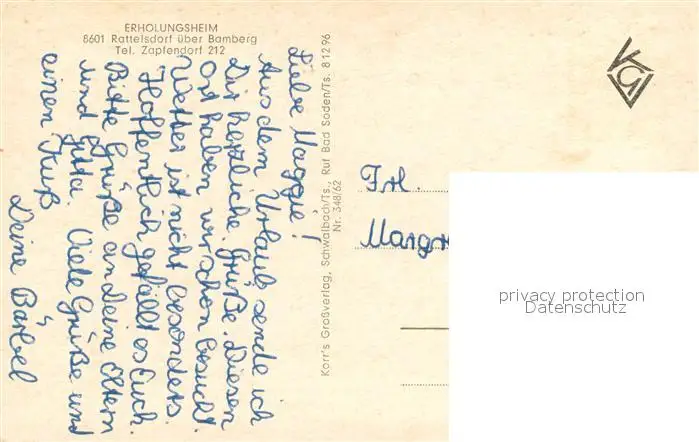 ERHOLUNGSHEIM
8601 Rattelsdorf über Bamberg
Tel. Zapfendorf 212
Liebe Maggie!
Aus dem Urlaub sende ich
Dir herzliche Grüße. Diesen
Ort haben wir schon besucht.
Wetter ist nicht besonders.
Hoffentlich gefällt es Euch.
Bitte Grüße an Deine Eltern
und Jutta. Viele Grüße und
einen Kuß
Deine Bärbel
Korr's Großverlag, Schwalbach/Ts., Ruf Bad Soden/Ts. 81296
Nr. 348/62
KGV
Frl.
Margr
privacy protection
Datenschutz